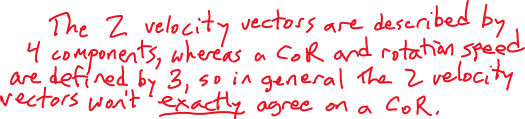 The 2 velocity vectors are described by
4 components, whereas a CoR and rotation speed
are defined by 3, so in general the 2 velocity
vectors won't exactly agree on a CoR.